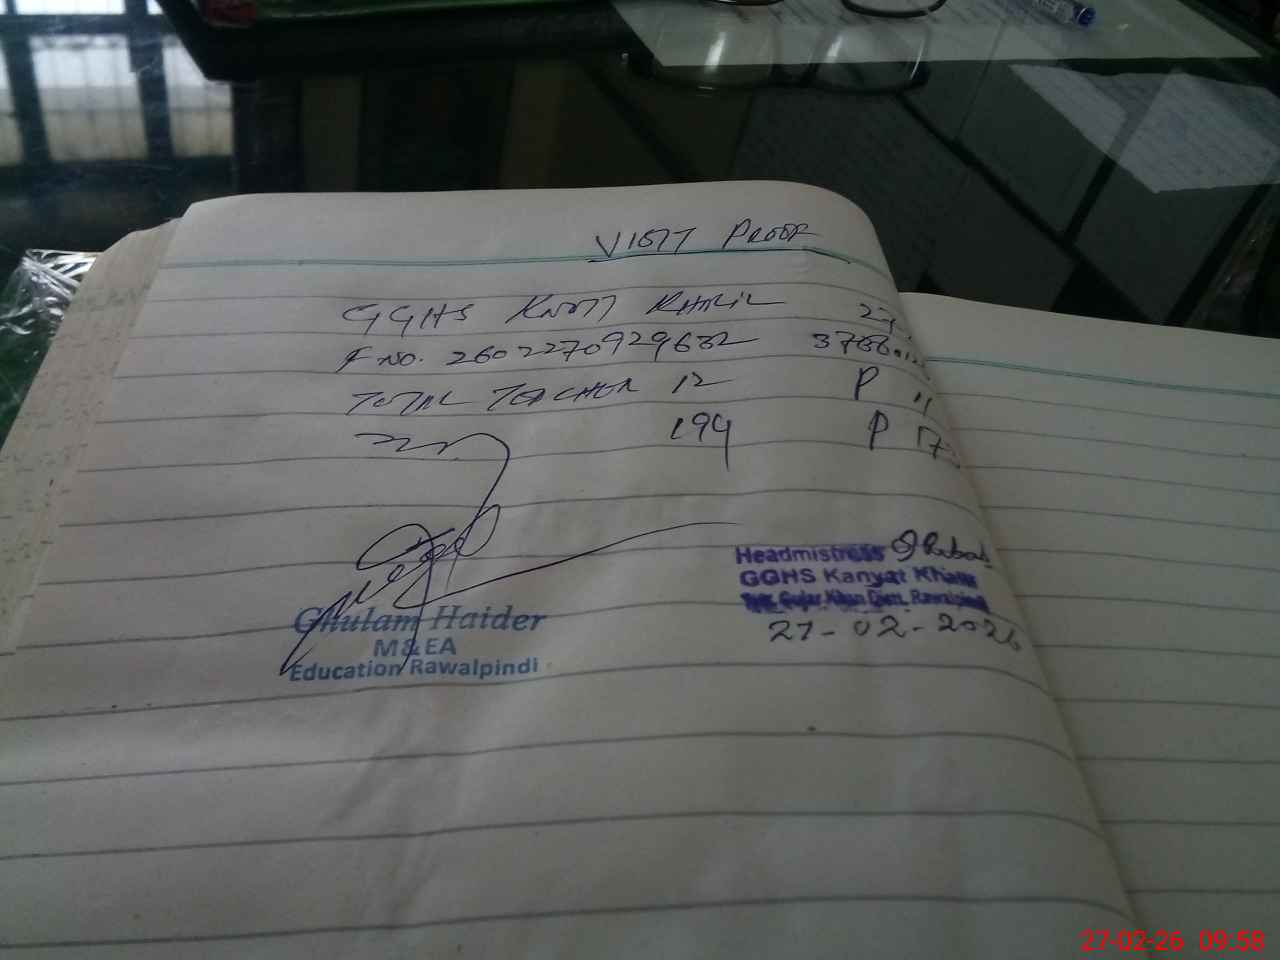 VISIT PROOF
GGHS
F NO. 2602270929632
TOTAL TEACHER 12 P 11
194 P 17
Ghulam Haider
M&EA
Education Rawalpindi
Headmistress
GGHS Kanyat Khalil
Teh: Gujar Khan Distt. Rawalpindi
27-02-2026
27-02-26 09:58